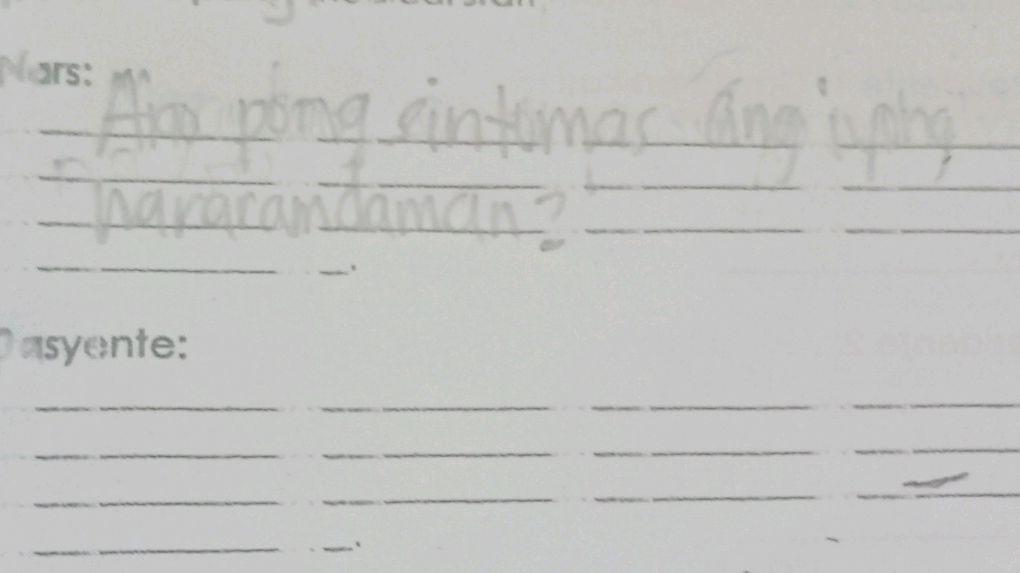 Nars:
Ano pong sintomas ang iyong
nararamdaman?
Pasyente: